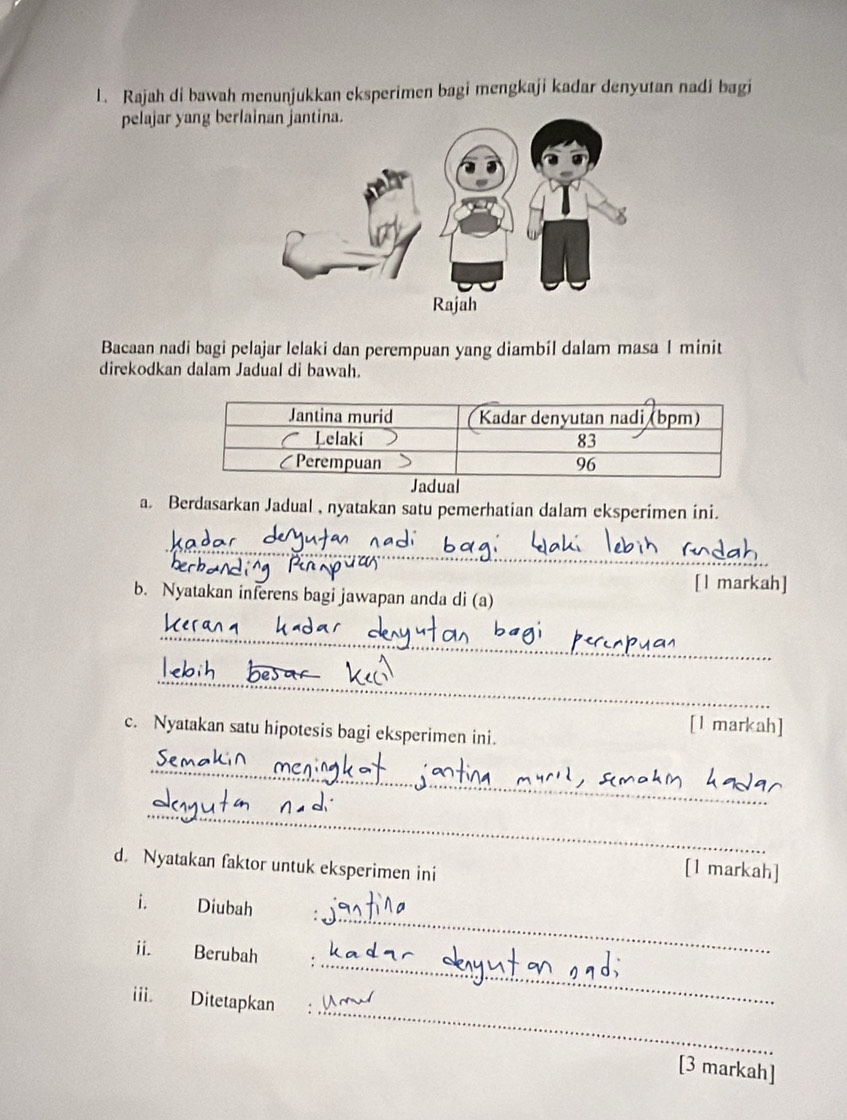 1. Rajah di bawah menunjukkan eksperimen bagi mengkaji kadar denyutan nadi bagi
pelajar yang berlainan jantina.
Rajah
Bacaan nadi bagi pelajar lelaki dan perempuan yang diambil dalam masa 1 minit
direkodkan dalam Jadual di bawah.
Jantina murid Kadar denyutan nadi (bpm)
Lelaki 83
Perempuan 96
Jadual
a. Berdasarkan Jadual , nyatakan satu pemerhatian dalam eksperimen ini.
kadar denyutan nadi bagi lelaki lebih rendah
berbanding Perempuan
[1 markah]
b. Nyatakan inferens bagi jawapan anda di (a)
kerana kadar denyutan bagi perempuan
lebih besar kecil
[1 markah]
c. Nyatakan satu hipotesis bagi eksperimen ini.
Semakin meningkat jantina murid, semakin kadar
denyutan nadi
[1 markah]
d. Nyatakan faktor untuk eksperimen ini
i. Diubah : jantina
ii. Berubah : kadar denyutan nadi
iii. Ditetapkan : Umur
[3 markah]